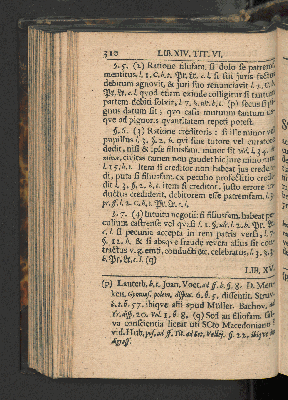 310 LIB. XIV. TIT. VI.
§. 5. (2) Ratione filiifam. si dolo se patremf.
mentitus, l. 1. C. h. t. Pr. & c. l. si sui juris factus
debitum agnovit, & juri suo renunciavit l. 2. C. h.
Pr. & c. l. quod etiam exinde colligitur si tantum
partem debiti solvit, l. 7. §. ult. h. t. (p) secus si pi-
gnus datum sit; quo casu mutuum tantum us-
que ad pignoris quantitatem repeti potest.
§. 6. (3) Ratione creditoris: si ipse minor vel
pupillus l. 3. §. 2. h. t. sine tutore vel curatore
dedit, nisi & ipse filiusfam. minor sit vel. l. 34. ff. de
minor. civitas tamen non gaudet hic jure minorum
l. 15. h. t. Item si creditor non habeat jus creden-
di, puta si filiusfam. ex peculio profectitio credi-
dit l. 3. §. 2. h. t. item si creditor, justo errore in-
ductus crediderit, debitorem esse patremfam. l. 3.
pr. ff. l. 2. C. h. t. Pr. & c. l.
§. 7. (4) Intuitu negotii: si filiusfam. habeat pe-
culium castrense vel quasi l. 1. §. ult. l. 2. h. t. Pr. &
c. l. si pecunia accepta in rem patris versa, l. 7.
§. 12. h. & si absque fraude revera alius sit con-
tractus v. g. emt. conductio &c. celebratus, l. 3. §. 3.
h. Pr. & c. l. (q)
LIB. XV.
(p) Lauterb. h. t. Joan. Voet. ad ff. h. §. 8. D. Men-
ken. Gymnas. polem. disput. 6. §. 5. dissentit. Struv.
h. t. §. 57. ibique alii apud Müller. Bachov. ad
Tr. diss. 20. Vol. 1. §. 8. (q) Sed an filiofam. sal-
va conscientia liceat uti SCto Macedoniano?
vid. Hub. pos. ad ff. Tit. ad Sct. Vellej. §. 22. ibique